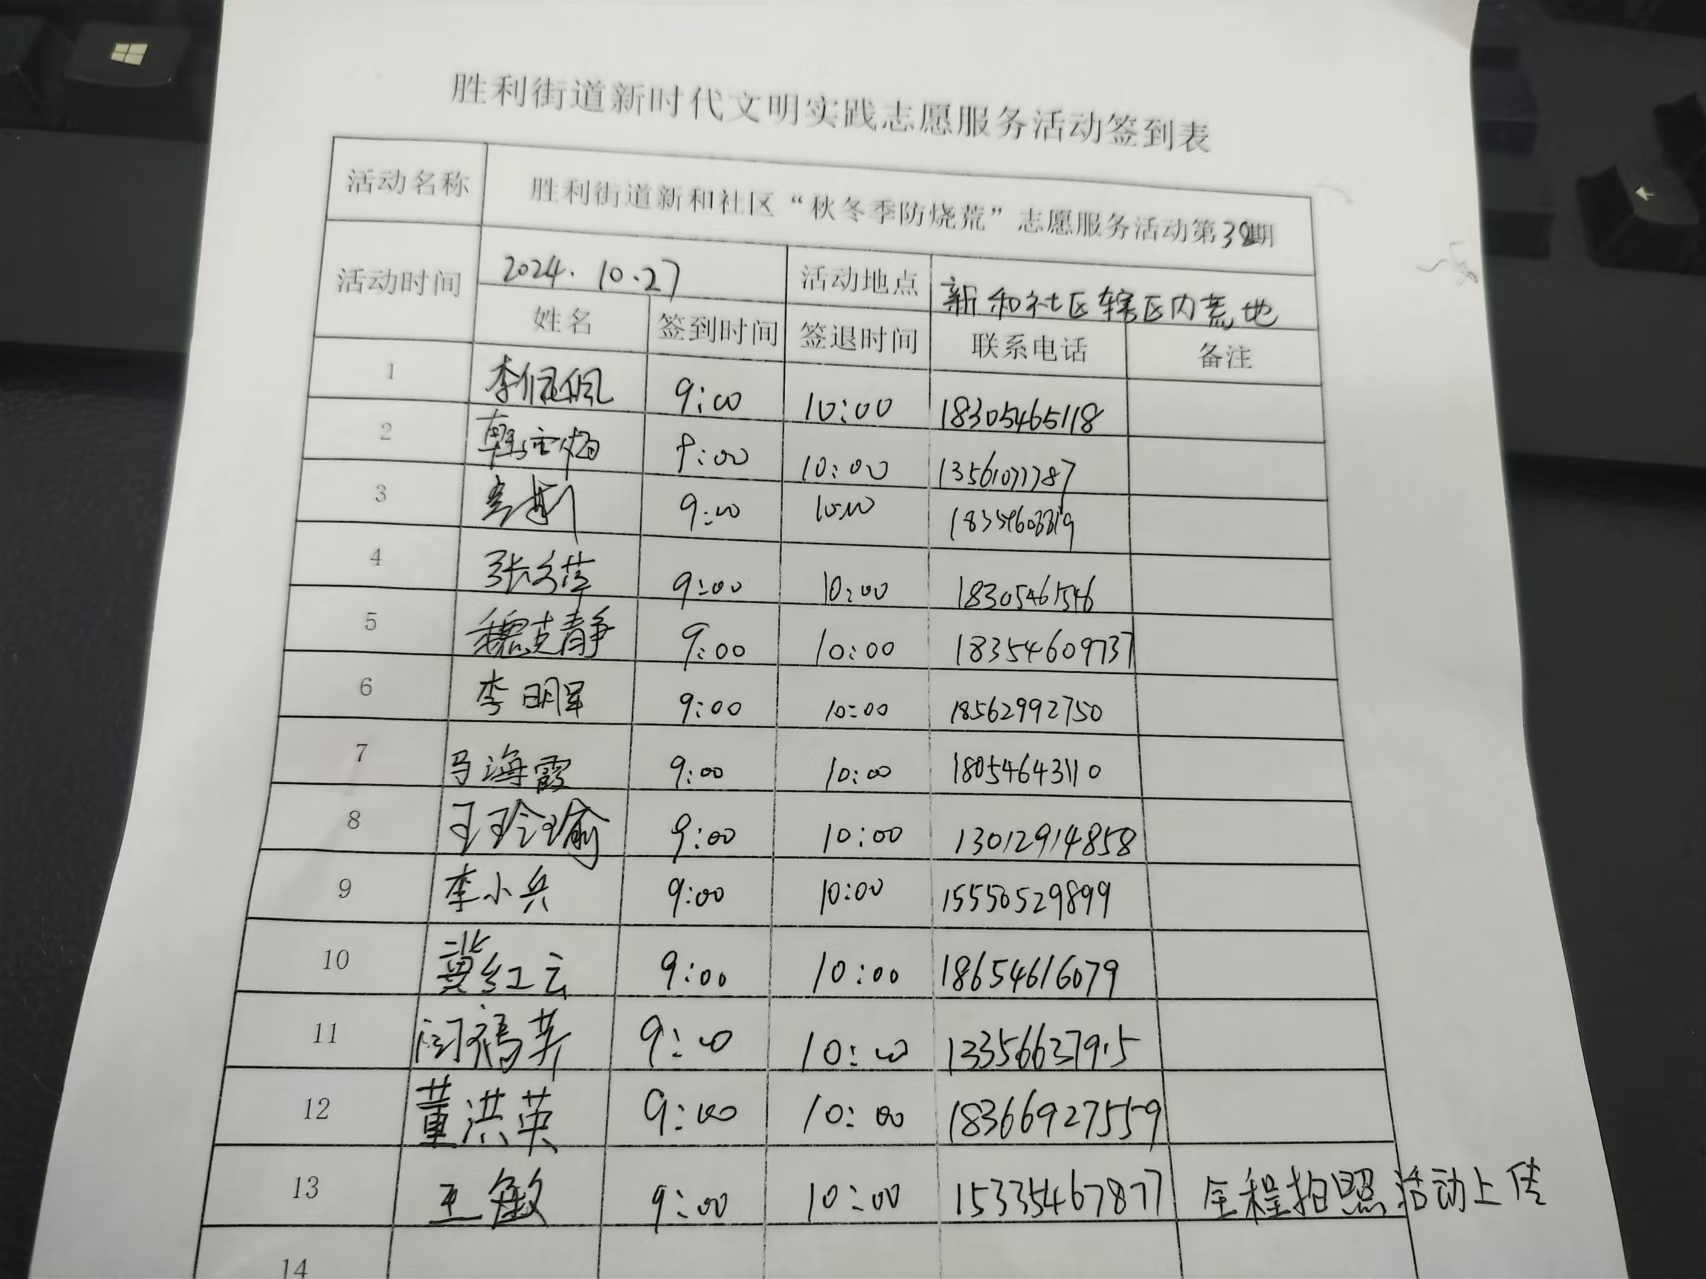 胜利街道新时代文明实践志愿服务活动签到表
活动名称 胜利街道新和社区“秋冬季防烧荒”志愿服务活动第 期
活动时间 2024.10.27 活动地点 新和社区辖区内荒地
姓名 签到时间 签退时间 联系电话 备注
1 李 9:00 10:00 18305465118
2 韩雪梅 9:00 10:00 13561077787
3 9:00 10:00
4 张 萍 9:00 10:00 18305461546
5 魏志静 9:00 10:00 18354609737
6 李明军 9:00 10:00 18562992750
7 马海霞 9:00 10:00 18054643110
8 王玲瑜 9:00 10:00 13012914858
9 李小兵 9:00 10:00 15550529899
10 冀红云 9:00 10:00 18654616079
11 闫福英 9:00 10:00
12 董洪英 9:00 10:00 18366927559
13 王敏 9:00 10:00 15335467877 全程拍照活动上传
14